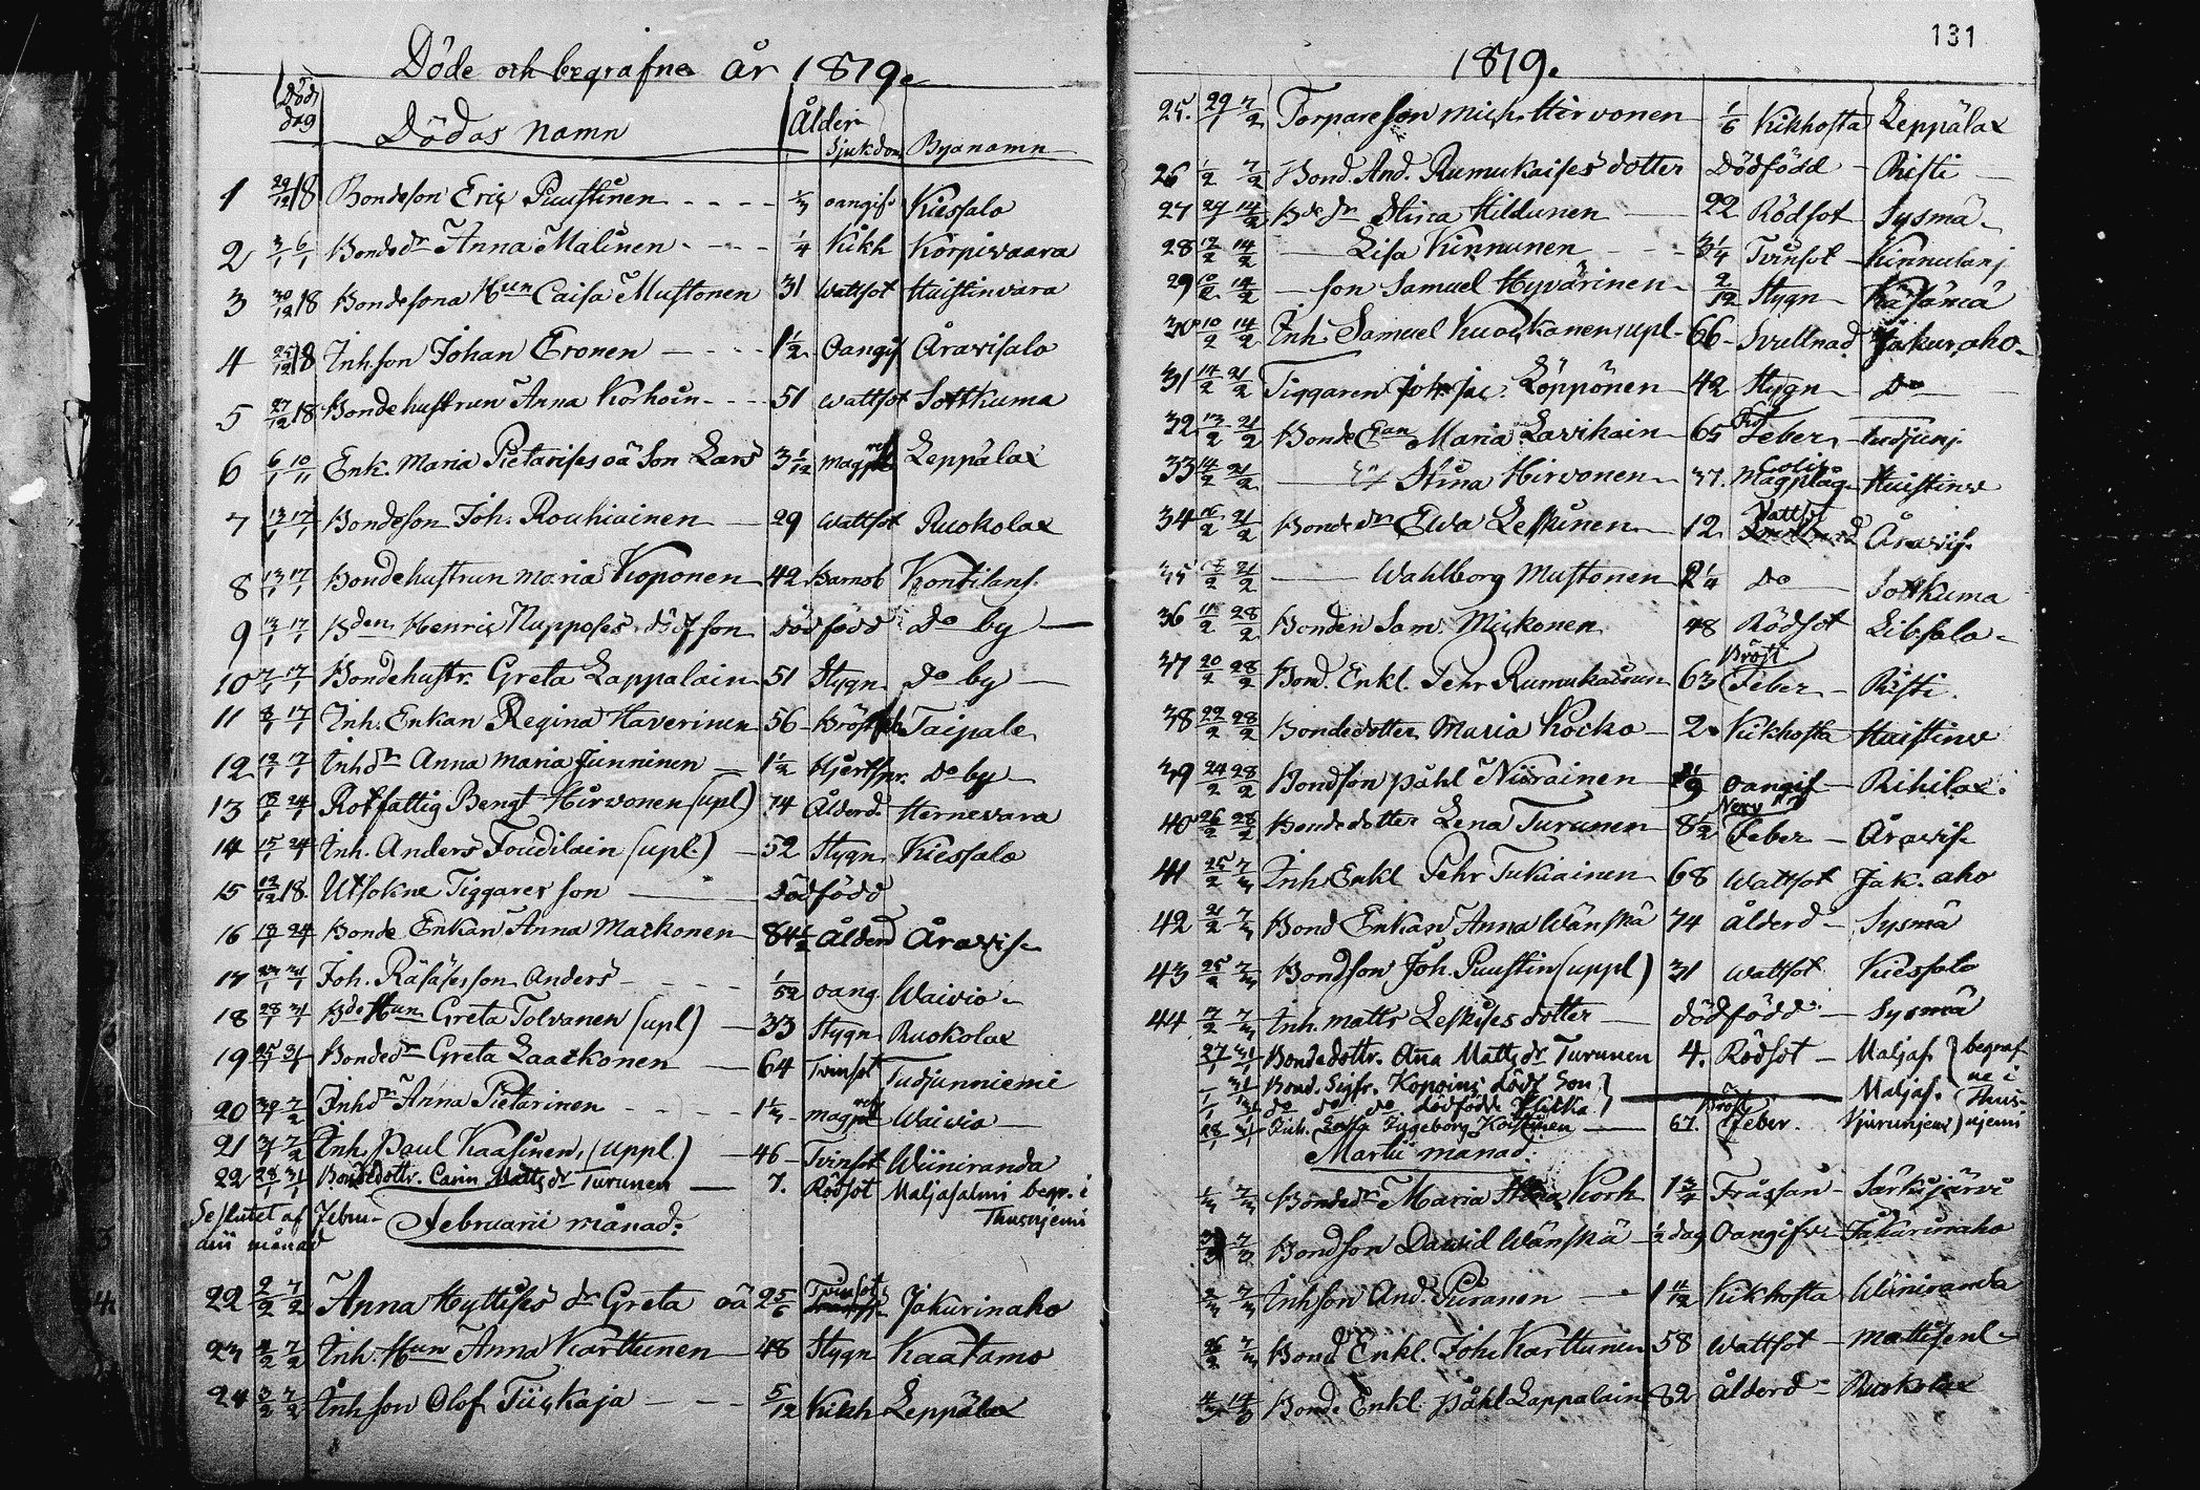 Döde och begrafne år 1819.
Död dag
Dödas namn Ålder Sjukdom Byanamn
1 29/12 18 Bondeson Eric Puustinen 1/3 oangif. Kiessalo
2 3/1 6/1 Bondedr Anna Malinen 1/4 Kikh Korpivaara
3 30/12 18 Bondesona Hun Caisa Mustonen 31 Wattsot Huistinvara
4 25/12 18 Inhson Johan Eronen 1 1/2 Oangif Åravisalo
5 27/12 18 Bondehustrun Anna Korhoin 51 Wattsot Sottkuma
6 6/1 10/1 Enk. Maria Pietarises oä Son Lars 3 1/12 Leppälax
7 13/1 17/1 Bondeson Joh. Rouhiainen 29 Wattsot Ruokolax
8 13/1 17/1 Bondehustrun Maria Koponen 42 Barnsb Kontilans.
9 13/1 17/1 Bden Henric Nupposes dödf son dödfödd Do by
10 7/1 17/1 Bondehustr. Greta Lappalain 51 Stygn Do by
11 8/1 17/1 Inh. Enkan Regina Haverinen 56 Taipale
12 12/1 17/1 Inhdr Anna Maria Junninen 1 1/2 Do by
13 24/1 Rotfattig Bengt Hirvonen (upl) 74 Ålderd. Hernevara
14 15/1 24/1 Inh. Anders Toudilain (upl.) 52 Stygn Kiessalo
15 12/12 18. Utsokne Tiggares son Dödfödd
16 18/1 24/1 Bonde Enkan Anna Markonen 84 1/2 Ålderd Åravis.
17 31/1 Joh. Räsäses son Anders 1/52 oang. Waivio
18 28/1 31/1 Bde Hun Greta Tolvanen (upl) 33 Stygn Ruokolax
19 25/1 31/1 Bondedr Greta Laackonen 64 Tvinsot Tudjunniemi
20 7/2 Inhdr Anna Pietarinen 1 1/3 Waivio
21 7/2 Inh. Paul Kaasinen, (uppl.) 46 Tvinsot Wiiniranda
22 28/1 31/1 Bondedottr. Carin Matts dr Turunen 7. Rödsot Maljasalmi begr. i
Thusnjemi
Februarii månad.
Se slutet af Februarii månad
22 2/2 7/2 Anna Hyttises dr Greta oä 2 5/6 Tvinsot Jakurinaho
23 7/2 Inh. Hun Anna Karttunen 48 Stygn Kaatamo
24 3/2 7/2 Inhson Olof Tiickaja 5/12 Kikh Leppälax
131
1819.
25. 29/1 7/2 Torpareson Mich. Hirvonen 1/6 Kikhosta Leppälax
26 1/2 7/2 Bond. And. Rumukaises dotter Dödfödd Risti
27 14/2 Bde dr Stina Hildunen 22 Rödsot Sysmä
28 14/2 Lisa Kinnunen 3 1/4 Tvinsot Kinnulanj
29 10/2 14/2 son Samuel Hyvärinen 2/12 Stygn
30 10/2 14/2 Inh. Samuel Kuockanen, upl. 66 Svullnad Jakur.aho
31 14/2 21/2 Tiggaren Joh. Jac. Löppönen 42 Stygn Do
32 13/2 21/2 Bonde Ean Maria Lavikain 65 Feber Tudjunj.
33 14/2 21/2 Stina Hirvonen 37. Colik Magplåg Huistinv
34 16/2 21/2 Bondedr Ewa Leskinen 12. Vattsot Åravis.
35 21/2 Wahlborg Mustonen 2 1/4 Do Sottkuma
36 28/2 Bonden Sam. Mickonen 48 Rödsot Libsalo
37 20/2 28/2 Bond. Enkl. Pehr Rumukainen 63 Bröst Feber Risti.
38 22/2 28/2 Bondedotter Maria Kocko 2. Kikhosta Huistinv
39 24/2 28/2 Bondson Påhl Niiranen oangif Rihilax.
40 26/2 28/2 Bondedotter Lena Turunen 8 1/2 Nerv Feber Åravis.
41 25/2 7/3 Inh. Enkl Pehr Tukiainen 68 Wattsot Jak. aho
42 21/2 7/3 Bond Enkan Anna Wänskä 74 Ålderd Sysmä
43 25/2 7/3 Bondson Joh. Puustin (uppl) 31 Wattsot Kiessalo
44 7/3 Inh. Matts Leskises dotter dödfödd Sysmä
27/1 31/1 Bondedottr. Anna Matts dr Turunen 4. Rödsot Maljas. begrafne i Thusnjemi
31/1 Bond. Sigfr. Kopoins dödf Son Maljas.
do do do dödfödde flicka
28/1 31/1 Inh. Ingeborg Koistinen 67. Bröst Feber.
Martii månad.
1/3 7/3 Bondedr Maria Kork 1 3/4 Frässan Särkijärvi
7/3 Bondson David Wänskä 1/2 dag Oangifv Jakurinaho
2/3 7/3 Inhson And. Puranen Kikhosta Wiiniranda
26/2 7/3 Bond Enkl. Joh. Karttunen 58 Wattsot
14/3 Bonde Enkl. Påhl Lappalain 82 Ålderd Ruokolax